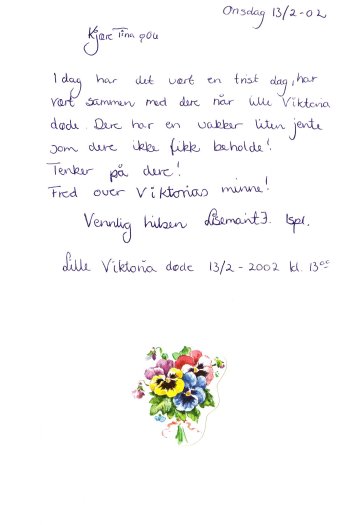 Onsdag 13/2-02
Kjære Tina og Ole
I dag har det vært en trist dag, har
vært sammen med dere når lille Viktoria
døde. Dere har en vakker liten jente
som dere ikke fikk beholde!
Tenker på dere!
Fred over Viktorias minne!
Vennlig hilsen Lisemarit J. spl.
Lille Viktoria døde 13/2-2002 kl. 13⁰⁰